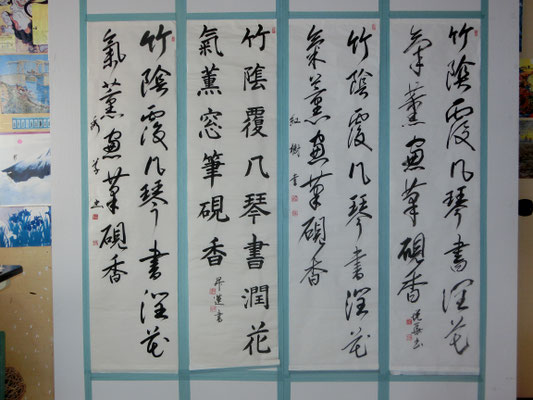 竹陰覆几琴書潤花
氣薰窓筆硯香
竹陰覆几琴書潤花
氣薰窓筆硯香
紅樹書
竹陰覆几琴書潤花
氣薫窓筆硯香
竹陰覆几琴書潤花
氣薰窓筆硯香